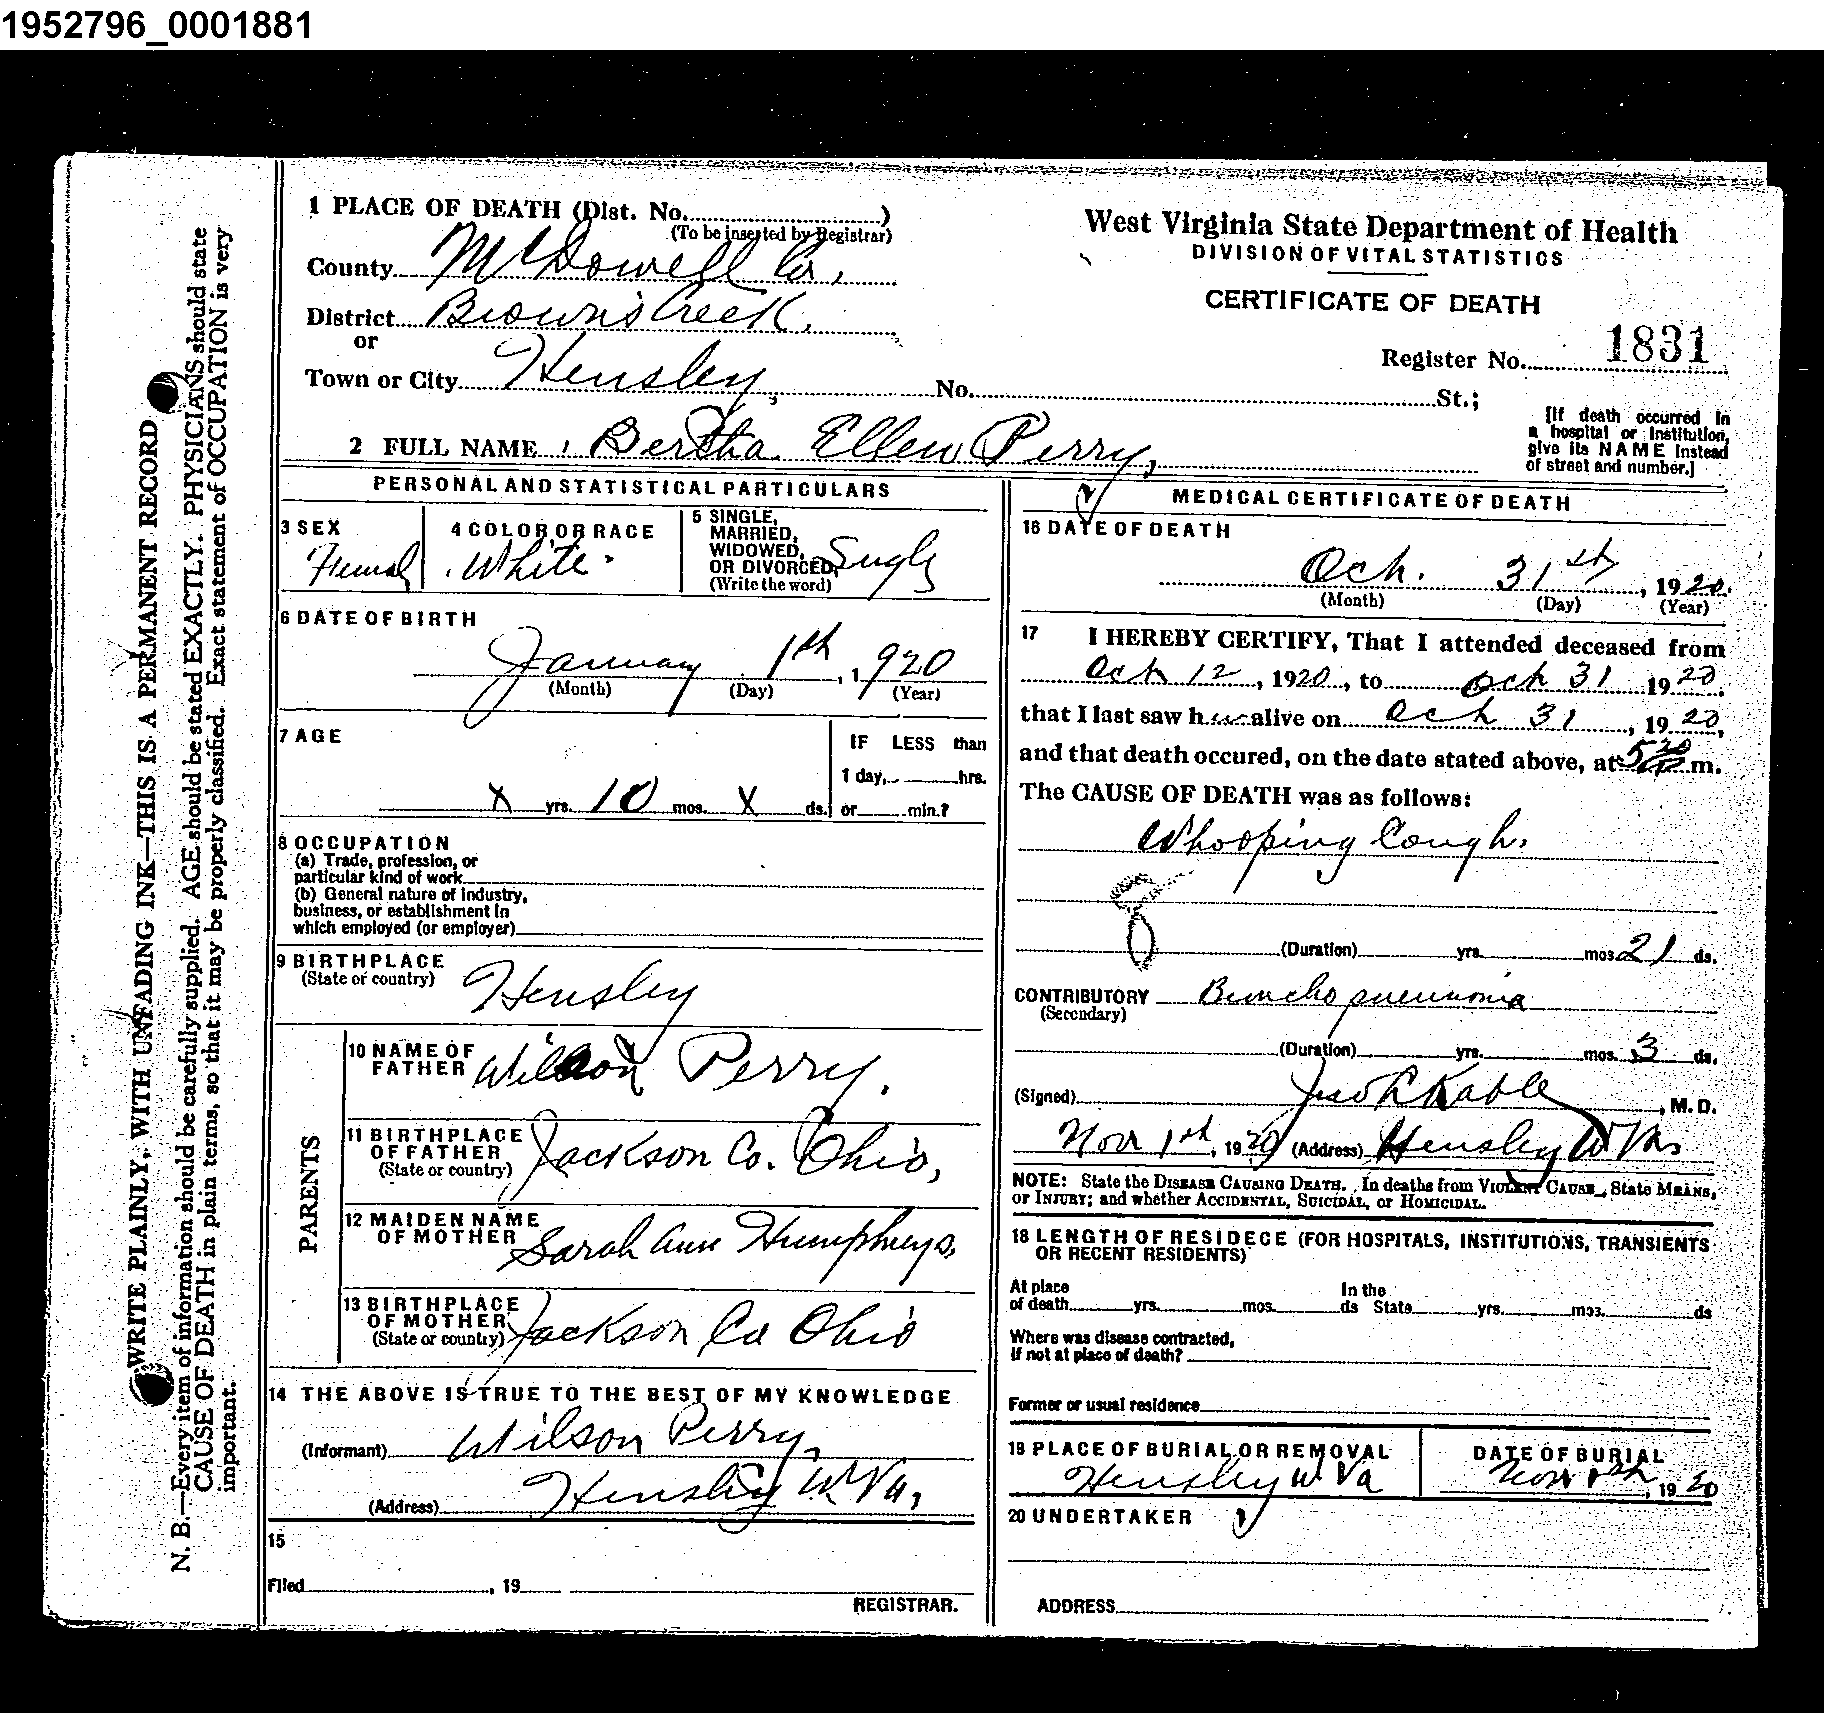 1952796_0001881
1 PLACE OF DEATH (Dist. No. )
(To be inserted by Registrar)
County McDowell Co,
District Browns Creek,
or
Town or City Hensley, No. St.;
West Virginia State Department of Health
DIVISION OF VITAL STATISTICS
CERTIFICATE OF DEATH
Register No. 1831
[If death occurred in
a hospital or institution,
give its NAME instead
of street and number.]
2 FULL NAME Bertha Ellen Perry,
PERSONAL AND STATISTICAL PARTICULARS
3 SEX
Femal
4 COLOR OR RACE
White
5 SINGLE,
MARRIED,
WIDOWED,
OR DIVORCED
(Write the word)
Sugle
6 DATE OF BIRTH
January 1th, 1920
(Month) (Day) (Year)
7 AGE
x yrs. 10 mos. x ds.
IF LESS than
1 day, hrs.
or min.?
8 OCCUPATION
(a) Trade, profession, or
particular kind of work
(b) General nature of industry,
business, or establishment in
which employed (or employer)
9 BIRTHPLACE
(State or country)
Hensley
PARENTS
10 NAME OF
FATHER
Wilson Perry.
11 BIRTHPLACE
OF FATHER
(State or country)
Jackson Co. Ohio,
12 MAIDEN NAME
OF MOTHER
Sarah Ann Humphreys,
13 BIRTHPLACE
OF MOTHER
(State or country)
Jackson Co Ohio
14 THE ABOVE IS TRUE TO THE BEST OF MY KNOWLEDGE
(Informant) Wilson Perry,
(Address) Hensley W. Va,
15
Filed , 19
REGISTRAR.
MEDICAL CERTIFICATE OF DEATH
16 DATE OF DEATH
Oct. 31st, 1920.
(Month) (Day) (Year)
17 I HEREBY CERTIFY, That I attended deceased from
Oct 12, 1920, to Oct 31 1920,
that I last saw her alive on Oct 31, 1920,
and that death occured, on the date stated above, at 530 P m.
The CAUSE OF DEATH was as follows:
Whooping Cough.
8
(Duration) yrs. mos. 21 ds.
CONTRIBUTORY Broncho pneumonia
(Secondary)
(Duration) yrs. mos. 3 ds.
(Signed) Jno L Kable, M. D.
Nov 1th, 1920 (Address) Hensley W Va
NOTE: State the DISEASE CAUSING DEATH. In deaths from VIOLENT CAUSE, State MEANS,
or INJURY; and whether ACCIDENTAL, SUICIDAL, or HOMICIDAL.
18 LENGTH OF RESIDECE (FOR HOSPITALS, INSTITUTIONS, TRANSIENTS
OR RECENT RESIDENTS)
At place
of death yrs. mos. ds
In the
State yrs. mos. ds
Where was disease contracted,
If not at place of death?
Former or usual residence
19 PLACE OF BURIAL OR REMOVAL
Hensley W Va
DATE OF BURIAL
Nov 1th, 1920
20 UNDERTAKER
ADDRESS
WRITE PLAINLY, WITH UNFADING INK—THIS IS A PERMANENT RECORD
N. B.—Every item of information should be carefully supplied. AGE should be stated EXACTLY. PHYSICIANS should state
CAUSE OF DEATH in plain terms, so that it may be properly classified. Exact statement of OCCUPATION is very
important.